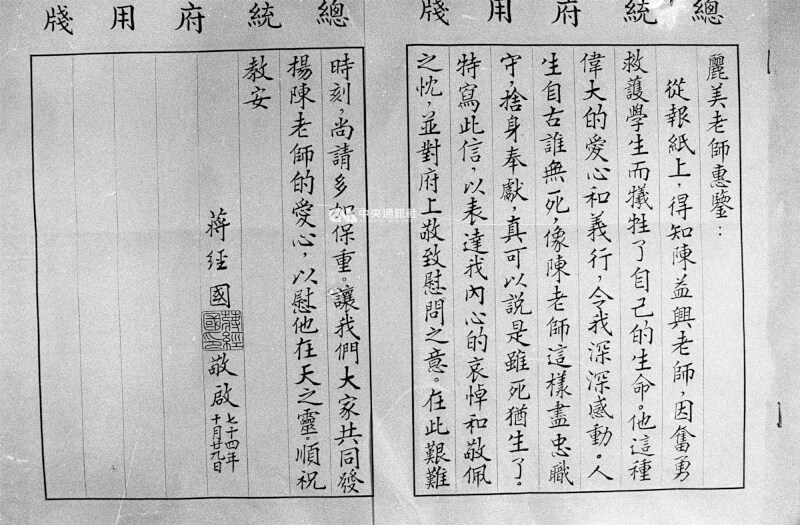 總統府用牋
麗美老師惠鑒：
從報紙上，得知陳益興老師，因奮勇
救護學生而犧牲了自己的生命。他這種
偉大的愛心和義行，令我深深感動。人
生自古誰無死，像陳老師這樣盡忠職
守，捨身奉獻，真可以說是雖死猶生了。
特寫此信，以表達我內心的哀悼和敬佩
之忱，並對府上敬致慰問之意。在此艱難
總統府用牋
時刻，尚請多加保重。讓我們大家共同發
揚陳老師的愛心，以慰他在天之靈。順祝
教安
蔣經國
蔣經國印
敬啟
七十四年
十月廿九日
中央通訊社